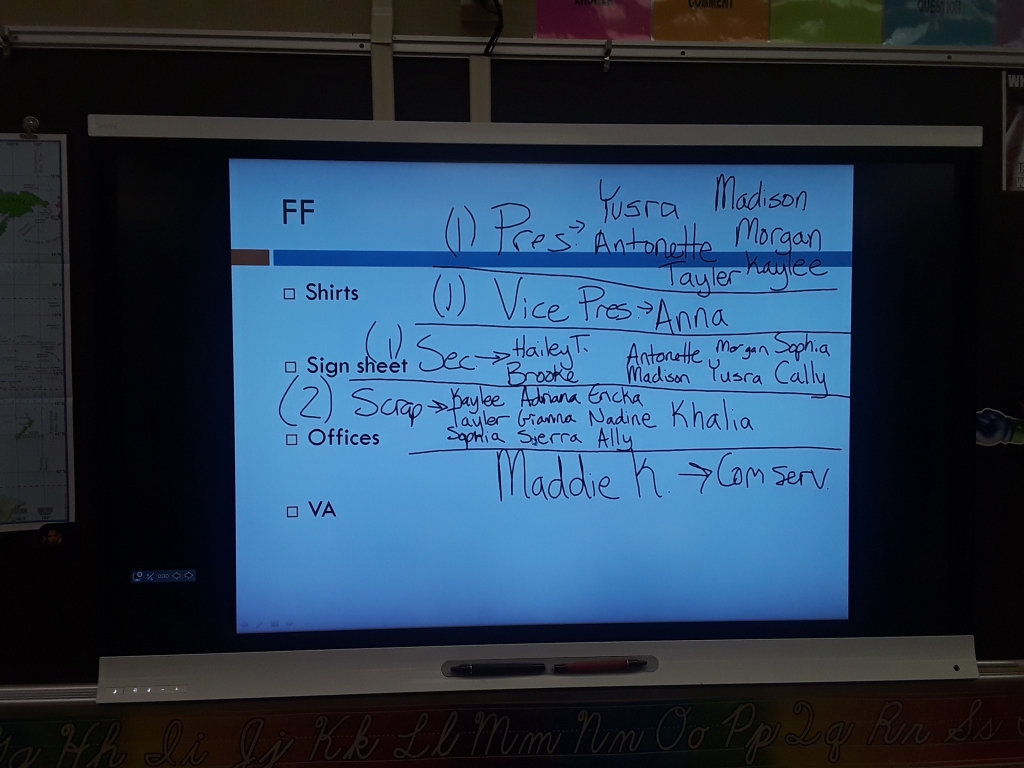 COMMENT
QUESTION
FF
(1) Pres → Yusra Madison
Antonette Morgan
Tayler Kaylee
Shirts
(1) Vice Pres → Anna
(1) Sec → Hailey T. Antonette Morgan Sophia
Brooke Madison Yusra Cally
Sign sheet
(2) Scrap → Kaylee Adriana Ericka
Tayler Gianna Nadine Khalia
Sophia Sierra Ally
Offices
Maddie K. → Com serv.
VA
Hh Ii Jj Kk Ll Mm Nn Oo Pp Qq Rr Ss